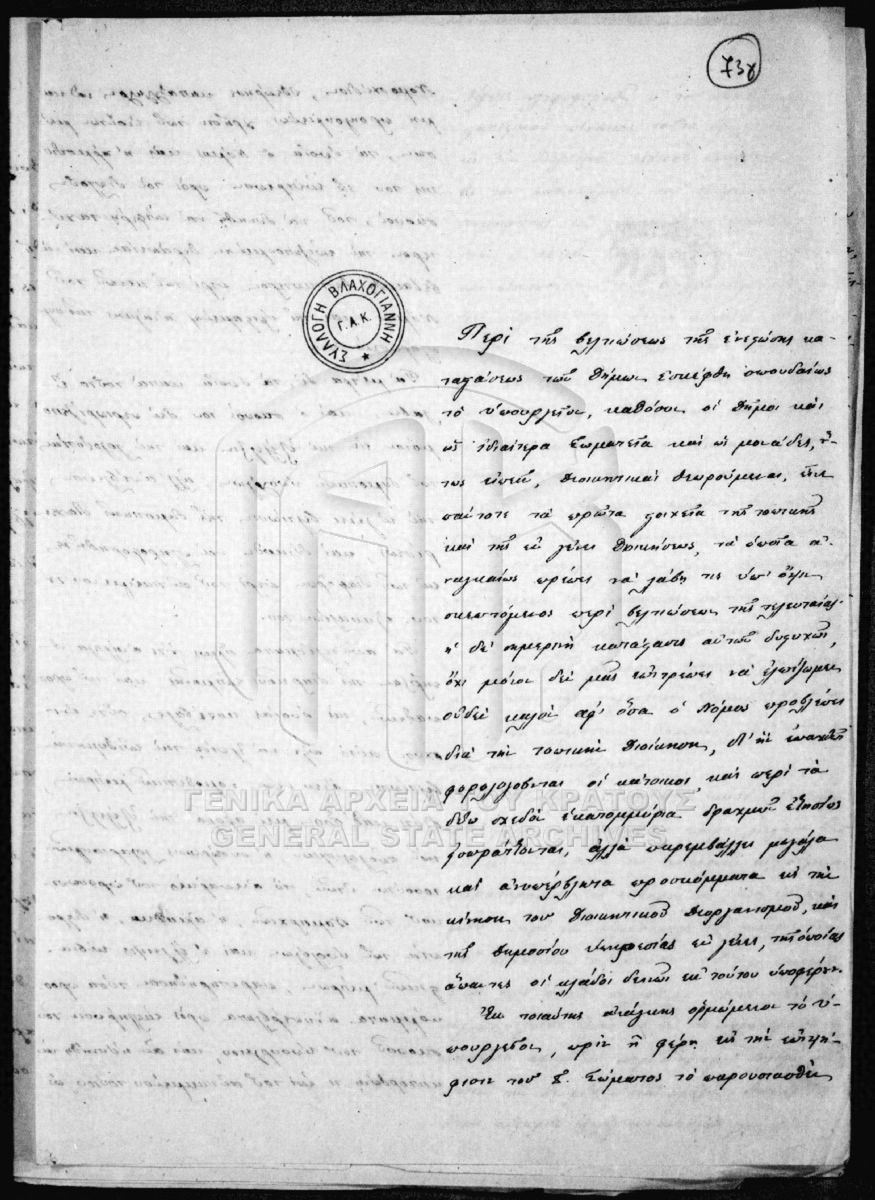 738
ΣΥΛΛΟΓΗ ΒΛΑΧΟΓΙΑΝΝΗ
Γ.Α.Κ.
Περὶ τῆς βελτιώσεως τῆς ἐνεστώσης κα-
ταστάσεως τῶν Δήμων ἐσκέφθη σπουδαίως
τὸ ὑπουργεῖον, καθόσον οἱ Δῆμοι καὶ
ὡς ἰδιαίτερα Σωματεῖα καὶ ὡς μονάδες, οὕ-
τως εἰπεῖν, Διοικητικαὶ θεωρούμεναι,
τὰ πρῶτα στοιχεῖα τῆς τοπικῆς
καὶ τῆς ἐν γένει Διοικήσεως, τὰ ὁποῖα ἀ-
ναγκαίως πρέπει νὰ λάβῃ τις ὑπ' ὄψιν
σκεπτόμενος περὶ βελτιώσεως τῆς τελευταίας.
ἡ δὲ σημερινὴ κατάστασις αὐτῶν δυστυχῶς,
ὄχι μόνον δὲν μᾶς ἐπιτρέπει νὰ ἐλπίζωμεν
οὐδὲν καλὸν ἀφ' ὅσα ὁ Νόμος προβλέπει
διὰ τὴν τοπικὴν Διοίκησιν, δι' ἣν ἐπαχθῶς
φορολογοῦνται οἱ κάτοικοι, καὶ περὶ τὰ
δύω σχεδὸν ἑκατομμύρια δραχμῶν ἐτησίως
εἰσπράττονται, ἀλλὰ παρεμβάλλει μεγάλα
καὶ ἀνυπέρβλητα προσκόμματα εἰς τὴν
κίνησιν τοῦ Διοικητικοῦ Διοργανισμοῦ, καὶ
τῆς Δημοσίου ὑπηρεσίας ἐν γένει, τῆς ὁποίας
ἅπαντες οἱ κλάδοι δεινῶς ἐκ τούτου ὑποφέρουν.
Ἐκ τοιαύτης ἀνάγκης ὁρμώμενον τὸ ὑ-
πουργεῖον, πρὶν ἢ φέρῃ εἰς τὴν ἐπιψή-
φισιν τοῦ Σ. Σώματος τὸ παρουσιασθὲν
ΓΕΝΙΚΑ ΑΡΧΕΙΑ ΤΟΥ ΚΡΑΤΟΥΣ
GENERAL STATE ARCHIVES